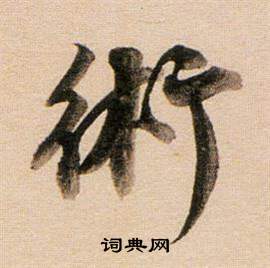 術
词典网